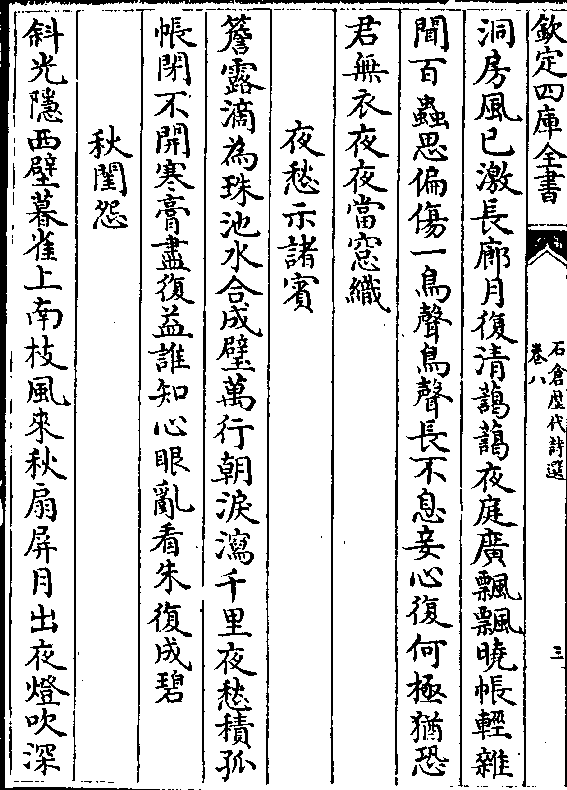 欽定四庫全書
石倉歷代詩選
卷八
三
洞房風已激長廊月復清藹藹夜庭廣飄飄曉帳輕雜
聞百蟲思偏傷一鳥聲鳥聲長不息妾心復何極猶恐
君無衣夜夜當窓織
夜愁示諸賓
簷露滴為珠池水合成璧萬行朝淚瀉千里夜愁積孤
帳閉不開寒膏盡復益誰知心眼亂看朱復成碧
秋閨怨
斜光隱西壁暮雀上南枝風來秋扇屏月出夜燈吹深